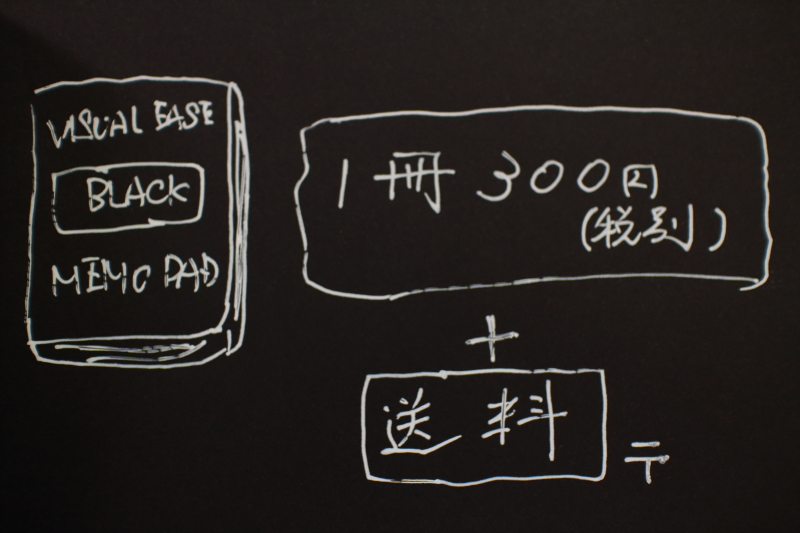 VISUAL EASE
BLACK
MEMO PAD
1冊 300円
(税別)
+
送料 〒